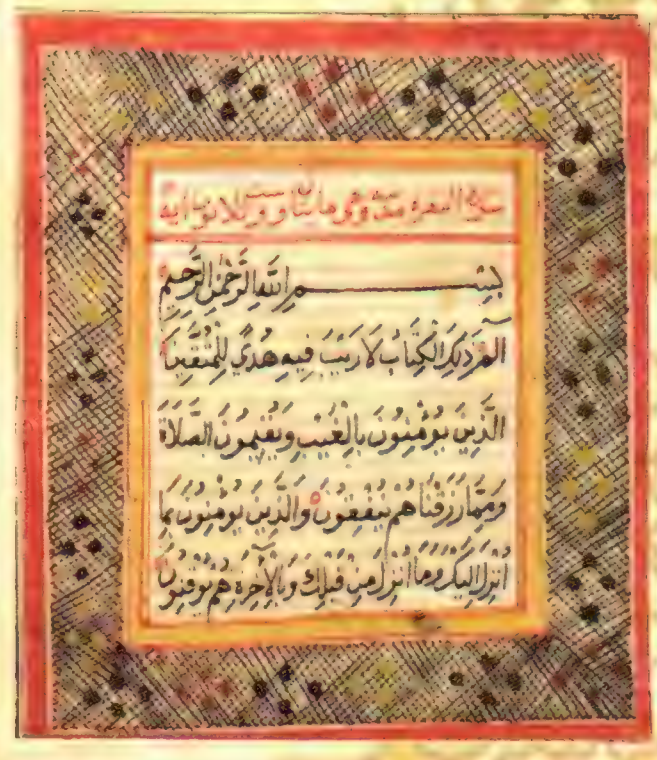 سورة البقرة مدنية وهي مايتان وست وثلاثون اية
بِسْمِ اللَّهِ الرَّحْمَٰنِ الرَّحِيمِ
الٓمٓ ذَٰلِكَ الْكِتَابُ لَا رَيْبَ فِيهِ هُدًى لِلْمُتَّقِينَ
الَّذِينَ يُؤْمِنُونَ بِالْغَيْبِ وَيُقِيمُونَ الصَّلَاةَ
وَمِمَّا رَزَقْنَاهُمْ يُنْفِقُونَ وَالَّذِينَ يُؤْمِنُونَ بِمَا
اُنْزِلَ اِلَيْكَ وَمَا اُنْزِلَ مِنْ قَبْلِكَ وَبِالْاٰخِرَةِ هُمْ يُوقِنُونَ